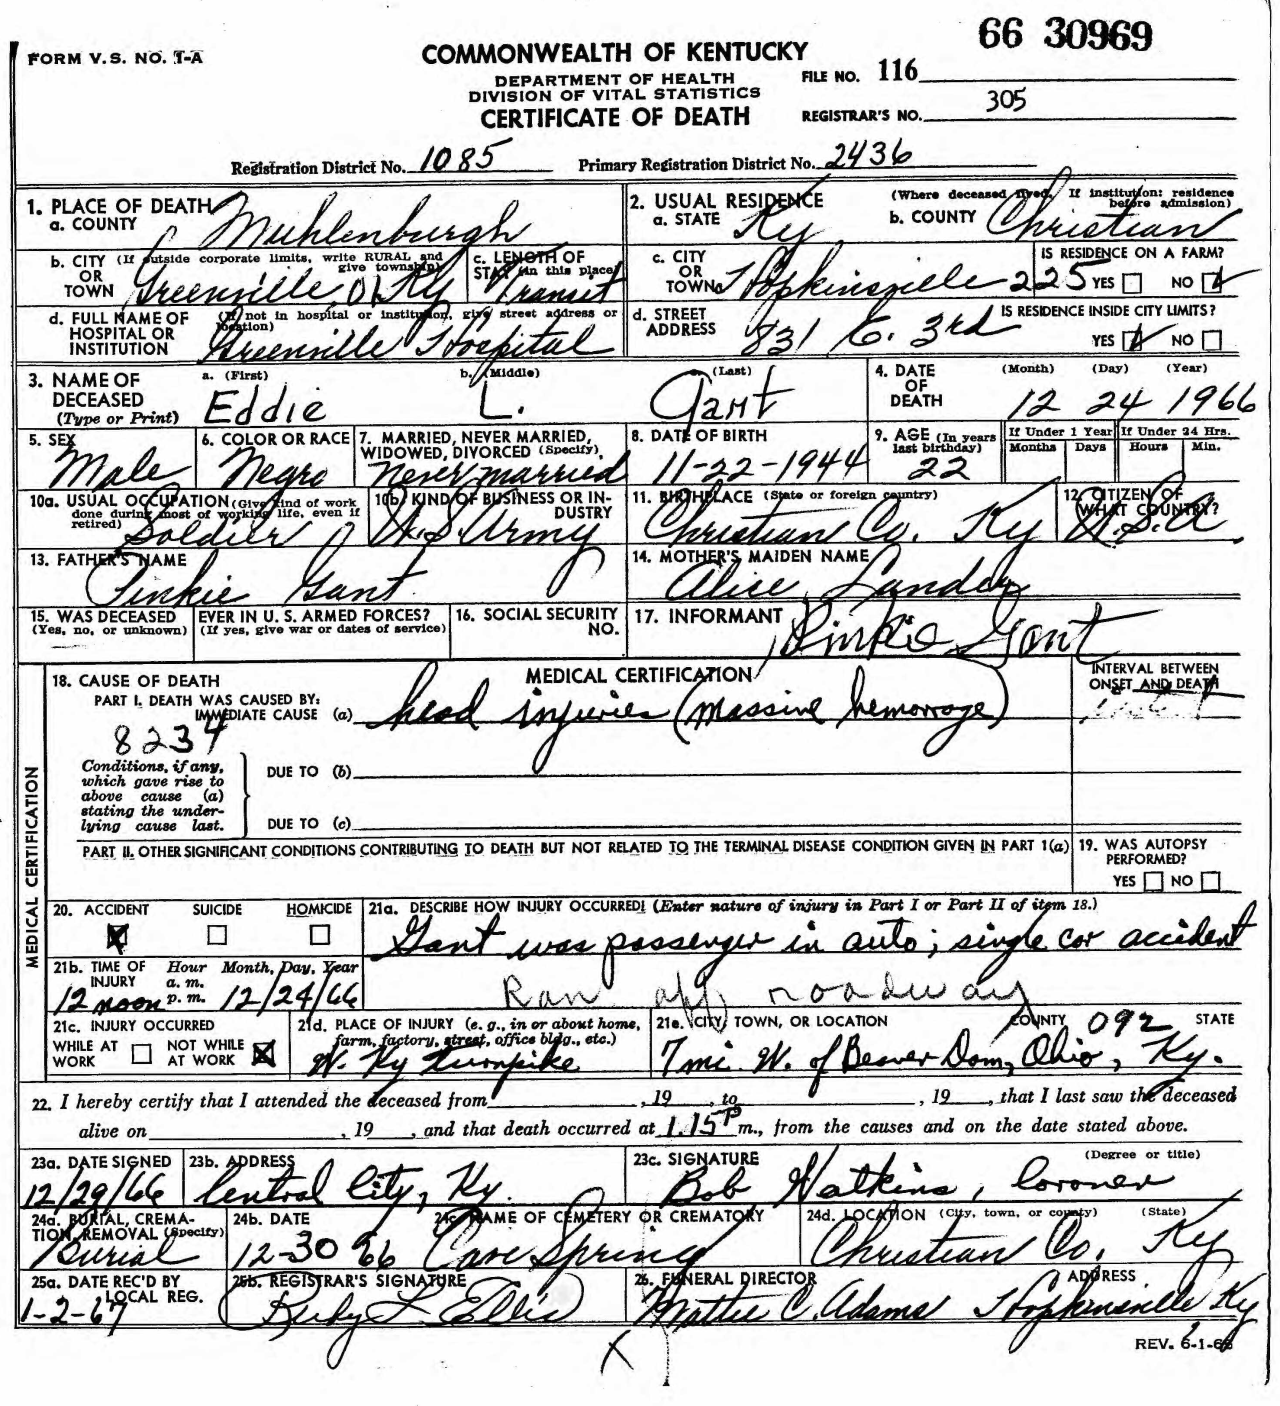 66 30969
FORM V.S. NO. 1-A
COMMONWEALTH OF KENTUCKY
DEPARTMENT OF HEALTH
DIVISION OF VITAL STATISTICS
CERTIFICATE OF DEATH
FILE NO. 116
REGISTRAR'S NO. 305
Registration District No. 1085 Primary Registration District No. 2436
1. PLACE OF DEATH
a. COUNTY Muhlenburgh
2. USUAL RESIDENCE (Where deceased lived. If institution: residence before admission)
a. STATE Ky b. COUNTY Christian
b. CITY OR TOWN (If outside corporate limits, write RURAL and give township) Greenville, Ky
c. LENGTH OF STAY (in this place) Transit
c. CITY OR TOWN Hopkinsville 225
IS RESIDENCE ON A FARM? YES NO
d. FULL NAME OF HOSPITAL OR INSTITUTION (If not in hospital or institution, give street address or location) Greenville Hospital
d. STREET ADDRESS 831 E. 3rd
IS RESIDENCE INSIDE CITY LIMITS? YES NO
3. NAME OF DECEASED (Type or Print)
a. (First) Eddie b. (Middle) L. (Last) Gant
4. DATE OF DEATH (Month) (Day) (Year) 12 24 1966
5. SEX Male
6. COLOR OR RACE Negro
7. MARRIED, NEVER MARRIED, WIDOWED, DIVORCED (Specify) Never married
8. DATE OF BIRTH 11-22-1944
9. AGE (In years last birthday) 22
If Under 1 Year Months Days
If Under 24 Hrs. Hours Min.
10a. USUAL OCCUPATION (Give kind of work done during most of working life, even if retired) Soldier
10b. KIND OF BUSINESS OR INDUSTRY U.S. Army
11. BIRTHPLACE (State or foreign country) Christian Co. Ky
12. CITIZEN OF WHAT COUNTRY? U.S.A.
13. FATHER'S NAME Pinkie Gant
14. MOTHER'S MAIDEN NAME Alise
15. WAS DECEASED EVER IN U. S. ARMED FORCES?
(Yes, no, or unknown) (If yes, give war or dates of service)
16. SOCIAL SECURITY NO.
17. INFORMANT Pinkie Gant
MEDICAL CERTIFICATION
18. CAUSE OF DEATH
PART I. DEATH WAS CAUSED BY:
IMMEDIATE CAUSE (a) head injuries (massive hemorrage)
INTERVAL BETWEEN ONSET AND DEATH
8234
Conditions, if any, which gave rise to above cause (a) stating the underlying cause last.
DUE TO (b)
DUE TO (c)
PART II. OTHER SIGNIFICANT CONDITIONS CONTRIBUTING TO DEATH BUT NOT RELATED TO THE TERMINAL DISEASE CONDITION GIVEN IN PART 1(a)
19. WAS AUTOPSY PERFORMED?
YES NO
MEDICAL CERTIFICATION
20. ACCIDENT SUICIDE HOMICIDE
21a. DESCRIBE HOW INJURY OCCURRED! (Enter nature of injury in Part I or Part II of item 18.)
Gant was passenger in auto; single car accident
21b. TIME OF INJURY Hour Month, Day, Year
12 noon a. m. p. m. 12/24/66
Ran off roadway
21c. INJURY OCCURRED
WHILE AT WORK NOT WHILE AT WORK
21d. PLACE OF INJURY (e. g., in or about home, farm, factory, street, office bldg., etc.)
W. Ky turnpike
21e. CITY, TOWN, OR LOCATION COUNTY 092 STATE
7 mi. W. of Beaver Dam, Ohio, Ky.
22. I hereby certify that I attended the deceased from , 19 , to , 19 , that I last saw the deceased
alive on , 19 , and that death occurred at 1.15 P m., from the causes and on the date stated above.
23a. DATE SIGNED 12/29/66
23b. ADDRESS Central City, Ky.
23c. SIGNATURE (Degree or title)
Bob Watkins, Coroner
24a. BURIAL, CREMATION, REMOVAL (Specify) Burial
24b. DATE 12-30 66
24c. NAME OF CEMETERY OR CREMATORY Cave Spring
24d. LOCATION (City, town, or county) (State) Christian Co. Ky
25a. DATE REC'D BY LOCAL REG. 1-2-67
25b. REGISTRAR'S SIGNATURE Ruby F Ellis
26. FUNERAL DIRECTOR ADDRESS
Mattie C. Adams Hopkinsville Ky
X
REV. 6-1-66